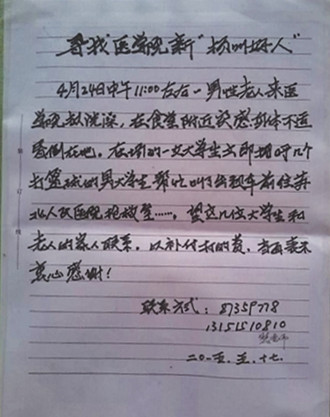 寻找医学院新"杨州好人"
4月24日中午11:00左右一男性老人来医
学院拟洗澡，在食堂附近突感身体不适
晕倒在地。在场的一女大学生立即招呼几个
打篮球的男大学生帮忙叫了出租车前往苏
北人民医院抢救室……，望这几位大学生和
老人的家人联系，以补付村的费，当面表示
衷心感谢！
联系方式：87359778
13151510810
二〇一五.五.十七.